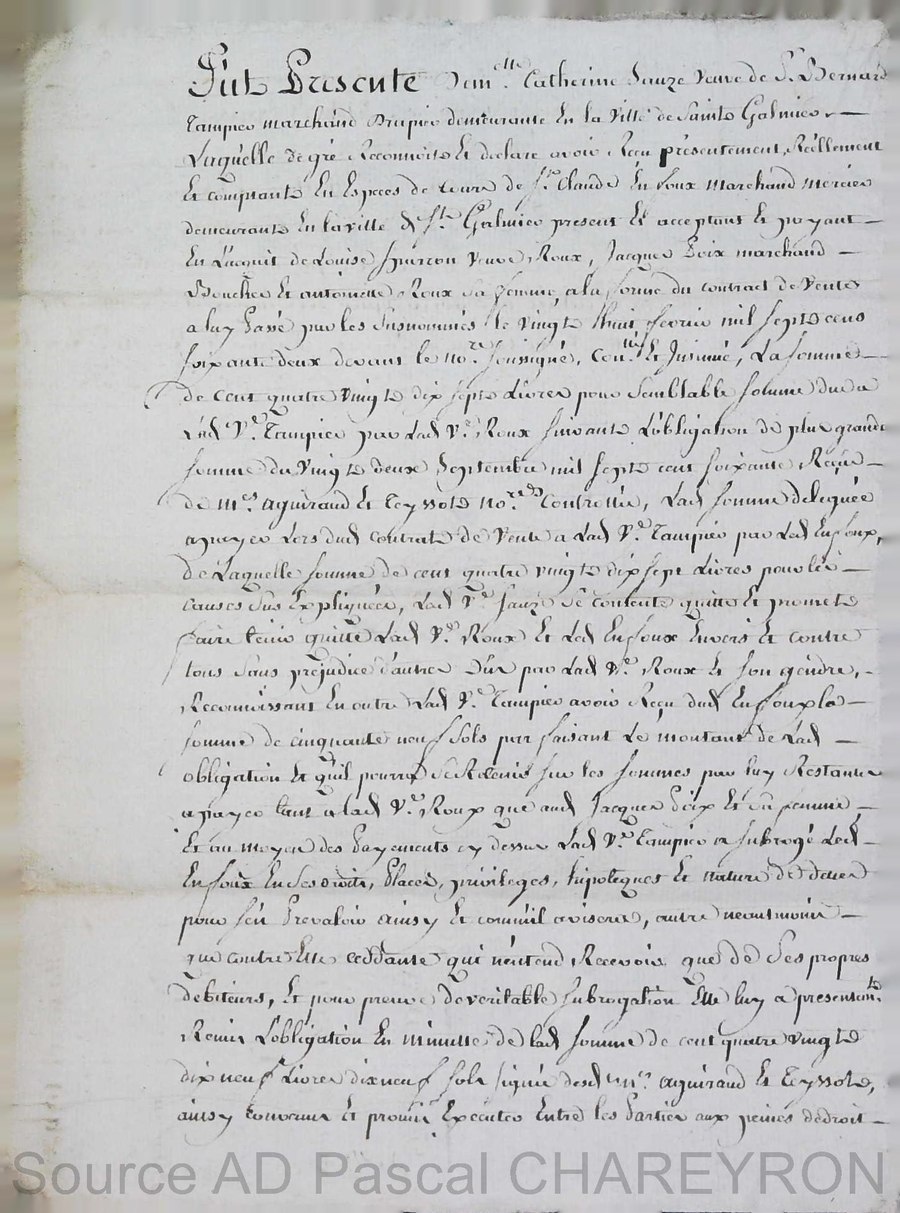 Fut Presente Dem.elle Catherine Sauze veuve de S.r Bernard
Tampier marchand Drapier demeurante En la ville de Saint Galmier, —
Laquelle de gré Reconnoit Et declare avoir Reçu présentement, Réellement
Et comptant En Especes de cours de S.r Claude Enfoux marchand mercier
demeurante En la ville de St. Galmier present Et acceptant Et payant —
En L'acquit de Louise veuve Roux, Jacques Poix marchand —
Boucher Et antoinette Roux sa femme, a la forme du contract de vente
a luy Passé par les susnommés le vingt huit fevrier mil sept cens
soixante deux devant le no.re soussigné, Con.llé Et Insinué, La somme —
de Cent quatre vingt dix sept Livres pour semblable somme due a
Lad V.e Tampier par Lad V.e Roux suivant L'obligation de plus grande
somme du vingt deux Septembre mil sept cent soixante Reçue —
de M.es aguiraud Et Teyssot no.res Controllée, Lad somme deleguée
a payer Lors dud Contrat de vente a Lad V.e Tampier par Led Enfoux,
de Laquelle somme de cent quatre vingt dix sept Livres pour les —
Causes sus Expliquées, Lad V.e Sauze se contente quitte Et promet
faire tenir quitte Lad V.e Roux Et Led Enfoux Envers Et contre
tous sans préjudice d'autres Dus par Lad V.e Roux Et son gendre, -
Reconnoissant En outre Lad V.e Tampier avoir Reçu dud Enfoux la —
somme de cinquante neuf sols parfaisant Le montant de Lad —
obligation Et qu'il pourra se Retenir sur les sommes par luy Restantes
a payer tant a lad V.e Roux que aud Jacques Poix Et sa femme —
Et au moyen des Payements cy dessus Lad V.e Tampier a subrogé Led —
Enfoux En ses droits, Places, privileges, hipoteques Et nature de dettes
pour s'en Prevaloir ainsy Et comm'il avisera, autre neantmoins —
que contre Elle ceddante qui n'entend Recevoir que de ses propres
debiteurs, Et pour preuve de veritable subrogation Elle luy a presentem.t
Remis L'obligation En minutte de lad somme de cent quatre vingt
dix neuf Livres dix neuf sols signée desd M.es aguiraud Et Teyssot,
ainsy convenu Et promis Executer Entre les Parties aux peines de droit —
Source AD Pascal CHAREYRON